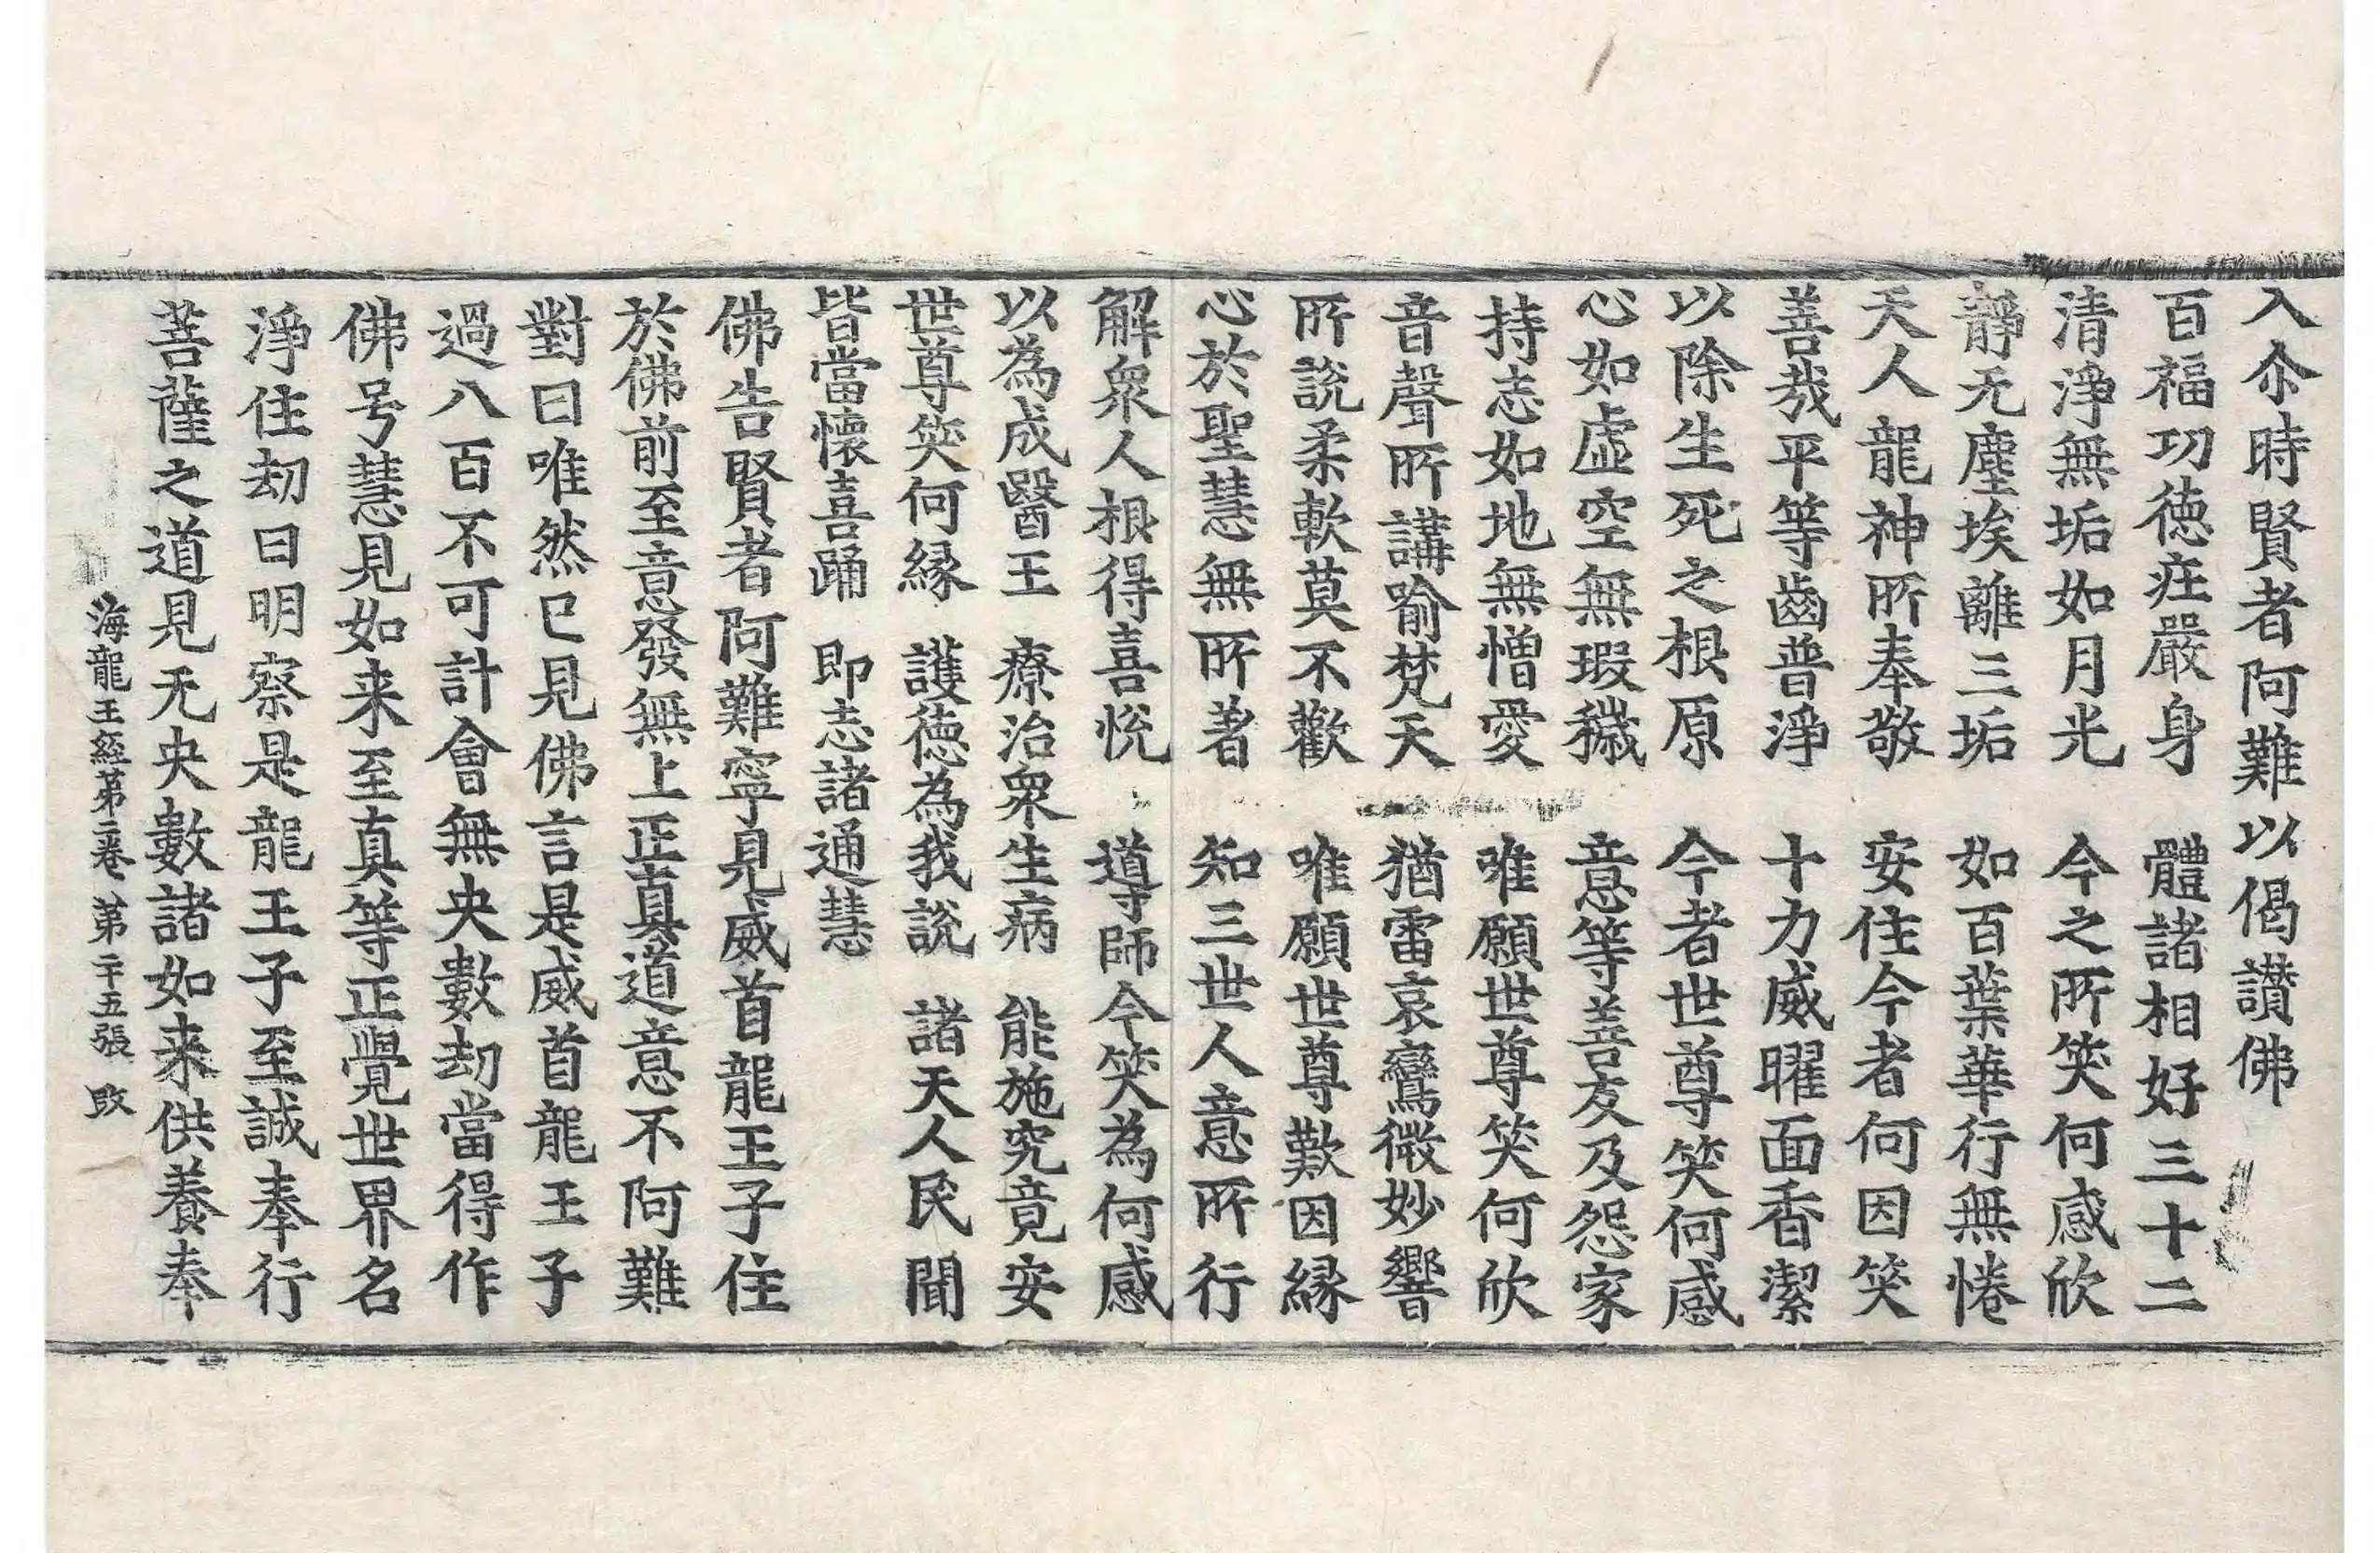 入尒時賢者阿難以偈讃佛
百福功德㽵嚴身　體諸相好三十二
清淨無垢如月光　今之所笑何感欣
靜无塵埃離三垢　如百葉華行無惓
天人龍神所奉敬　安住今者何因笑
善哉平等齒普淨　十力威曜面香潔
以除生死之根原　今者世尊笑何感
心如虛空無瑕穢　意等善友及怨家
持志如地無憎愛　唯願世尊笑何欣
音聲所講喻梵天　猶雷哀鸞微妙響
所說柔軟莫不歡　唯願世尊歎因縁
心於聖慧無所著　知三世人意所行
解衆人根得喜悅　導師今笑為何感
以為成醫王　療治衆生病　能施究竟安
世尊笑何縁　護德為我說　諸天人民聞
皆當懷喜踊　即志諸通慧
佛告賢者阿難寧見威首龍王子住
於佛前至意發無上正真道意不阿難
對曰唯然已見佛言是威首龍王子
過八百不可計會無央數劫當得作
佛号慧見如来至真等正覺世界名
淨住劫曰明察是龍王子至誠奉行
菩薩之道見无央數諸如来供養奉
海龍王經第二卷　第二十五張　改